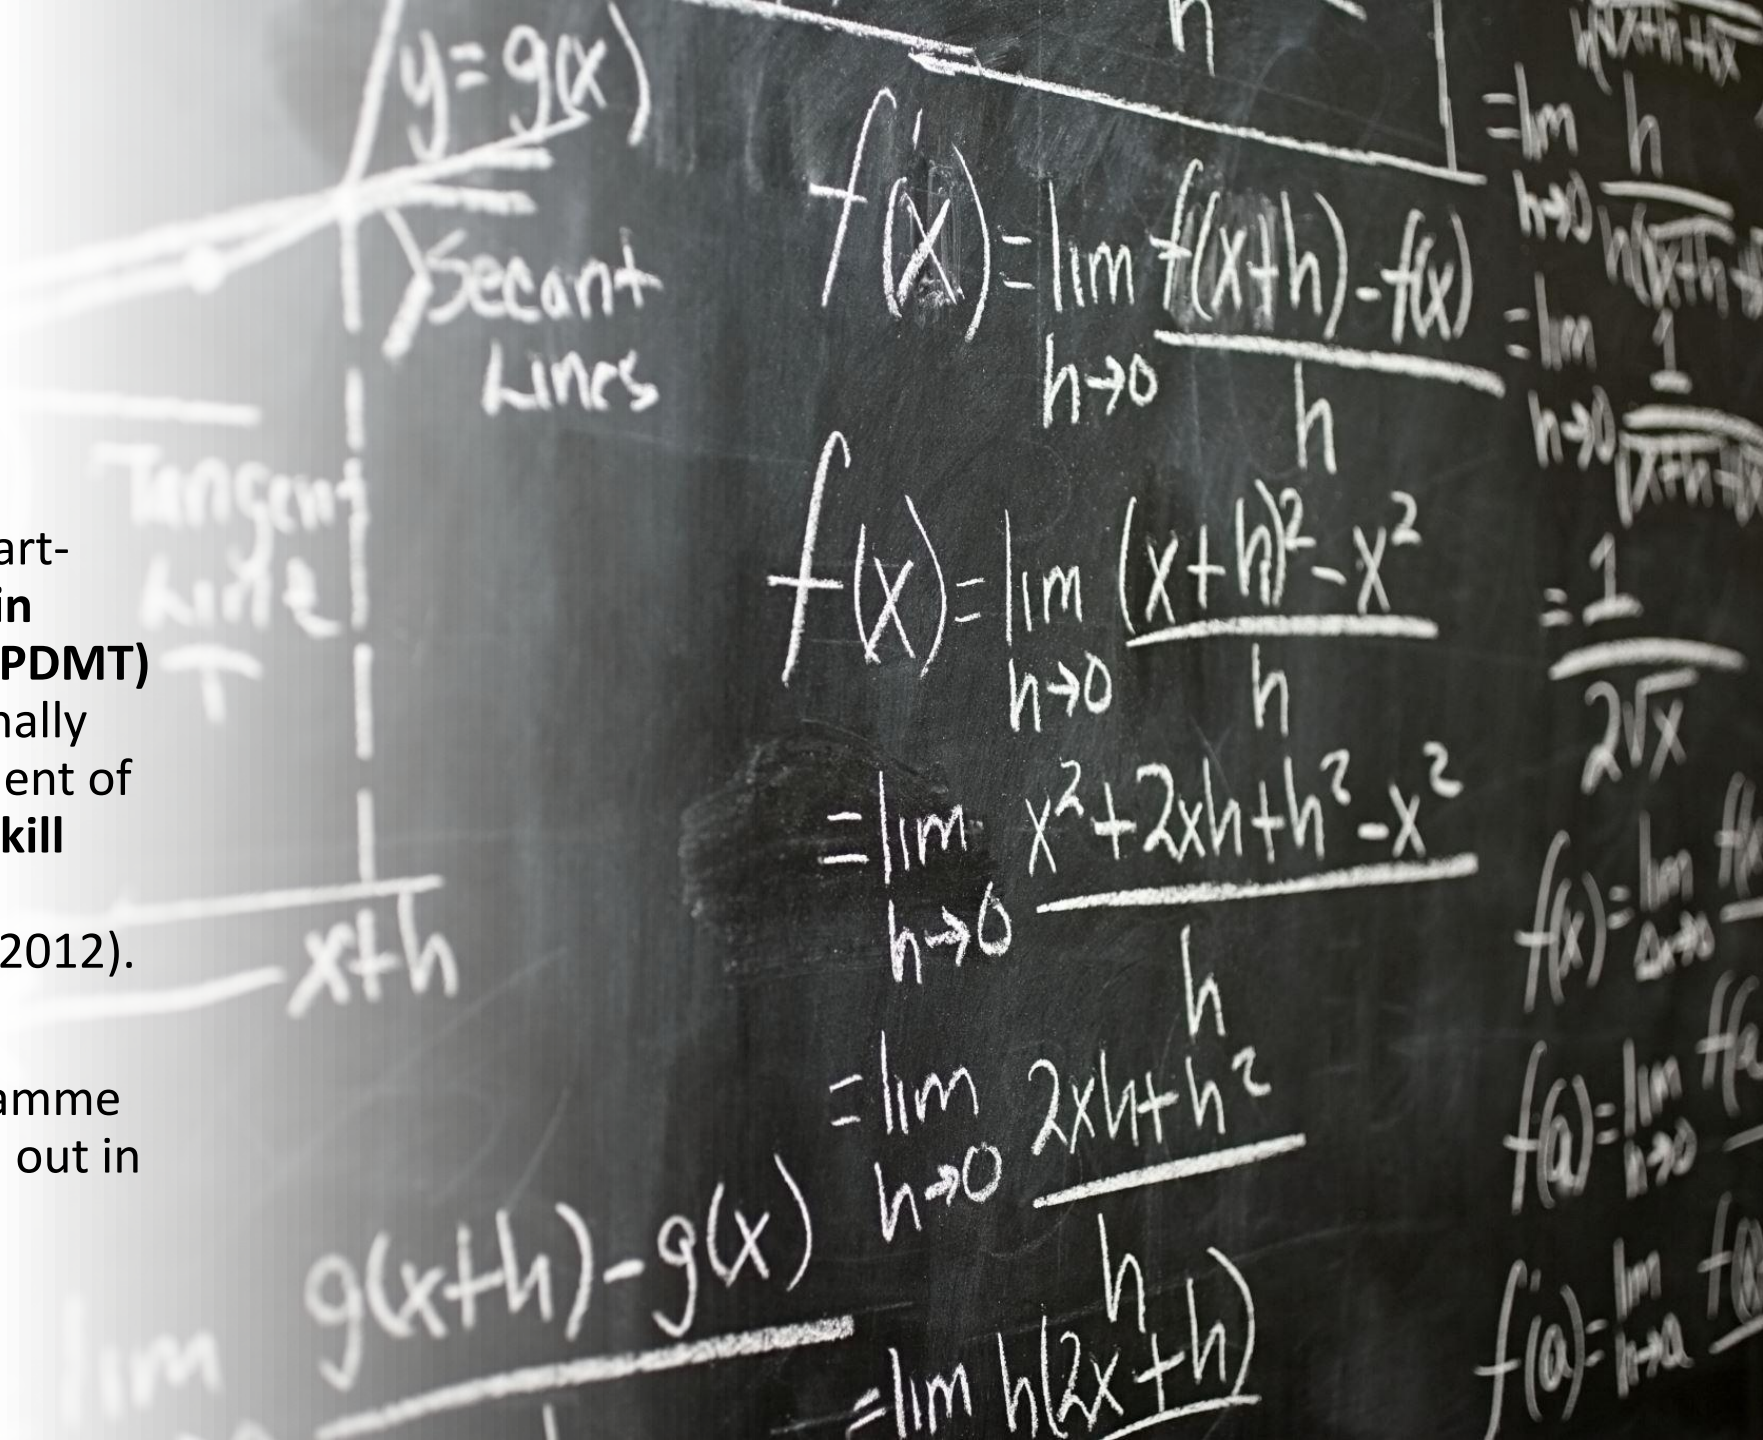 art-
in
PDMT)
nally
ent of
kill
2012).
amme
out in
y=g(x)
Secant
Lines
Tangent
Line
T
x+h
g(x+h)-g(x)
lim
h
f'(x)=lim f(x+h)-f(x)
h→0 h
f(x)=lim (x+h)²-x²
h→0 h
=lim x²+2xh+h²-x²
h→0 h
=lim 2xh+h²
h→0 h
=lim h(2x+h)
=lim h
h→0
=lim 1
h→0
=1
2√x
f(x)=lim
Δx→0
f(a)=lim
h→0
f'(a)=lim
h→a